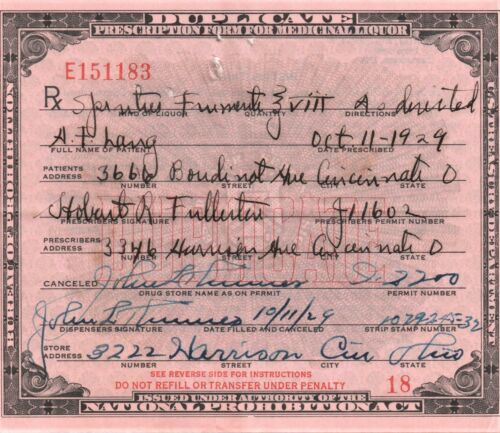 DUPLICATE
PRESCRIPTION FORM FOR MEDICINAL LIQUOR
BUREAU OF PROHIBITION
U.S. TREASURY DEPARTMENT
E151183
Rx Spiritus Frumenti ʒ viii As directed
KIND OF LIQUOR QUANTITY DIRECTIONS
A. F. Lang Oct-11-1929
FULL NAME OF PATIENT DATE PRESCRIBED
PATIENTS ADDRESS 3666 Boudinot Ave Cincinnati O
NUMBER STREET CITY STATE
Hobert R. Fullerton 11602
PRESCRIBERS SIGNATURE PRESCRIBERS PERMIT NUMBER
PRESCRIBERS ADDRESS 3346 Harrison Ave Cincinnati O
NUMBER STREET CITY STATE
CANCELED John B 3200
DRUG STORE NAME AS ON PERMIT PERMIT NUMBER
John B 10/11/29
DISPENSERS SIGNATURE DATE FILLED AND CANCELED STRIP STAMP NUMBER
STORE ADDRESS 3222 Harrison Cin Ohio
NUMBER STREET CITY STATE
SEE REVERSE SIDE FOR INSTRUCTIONS
DO NOT REFILL OR TRANSFER UNDER PENALTY 18
ISSUED UNDER AUTHORITY OF THE
NATIONAL PROHIBITION ACT